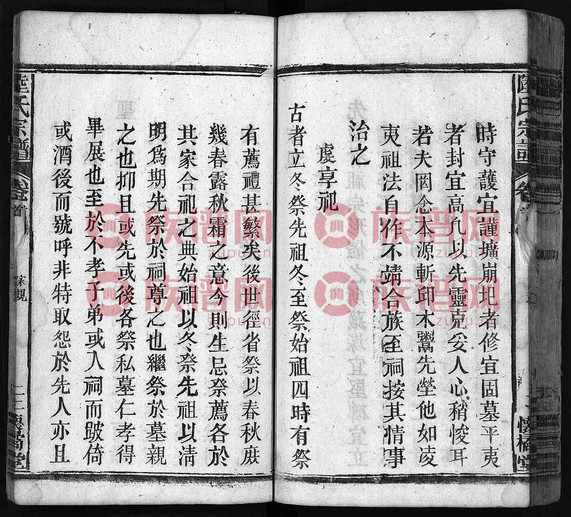 時守護宜謹壙崩圯者修宜固墓平夷
者封宜高凡以先靈克妥人心稍悛耳
若夫罔念本源斬卬木鬻先塋他如凌
夷祖法自作不靖合族至祠按其情事
治之
虔享祀
古者立冬祭先祖冬至祭始祖四時有祭
有薦禮甚繁矣後世徑省祭以春秋庶
幾春露秋霜之意今則生忌祭薦各於
其家合祀之典始祖以冬祭先祖以清
明爲期先祭於祠尊之也繼祭於墓親
之也抑且或先或後各祭私墓仁孝得
畢展也至於不孝子弟或入祠而跛倚
或酒後而號呼非特取怨於先人亦且
陸氏宗譜
卷首
家規
懷橘堂
陸氏宗譜
卷
懷橘堂
族譜网
zupu.cn